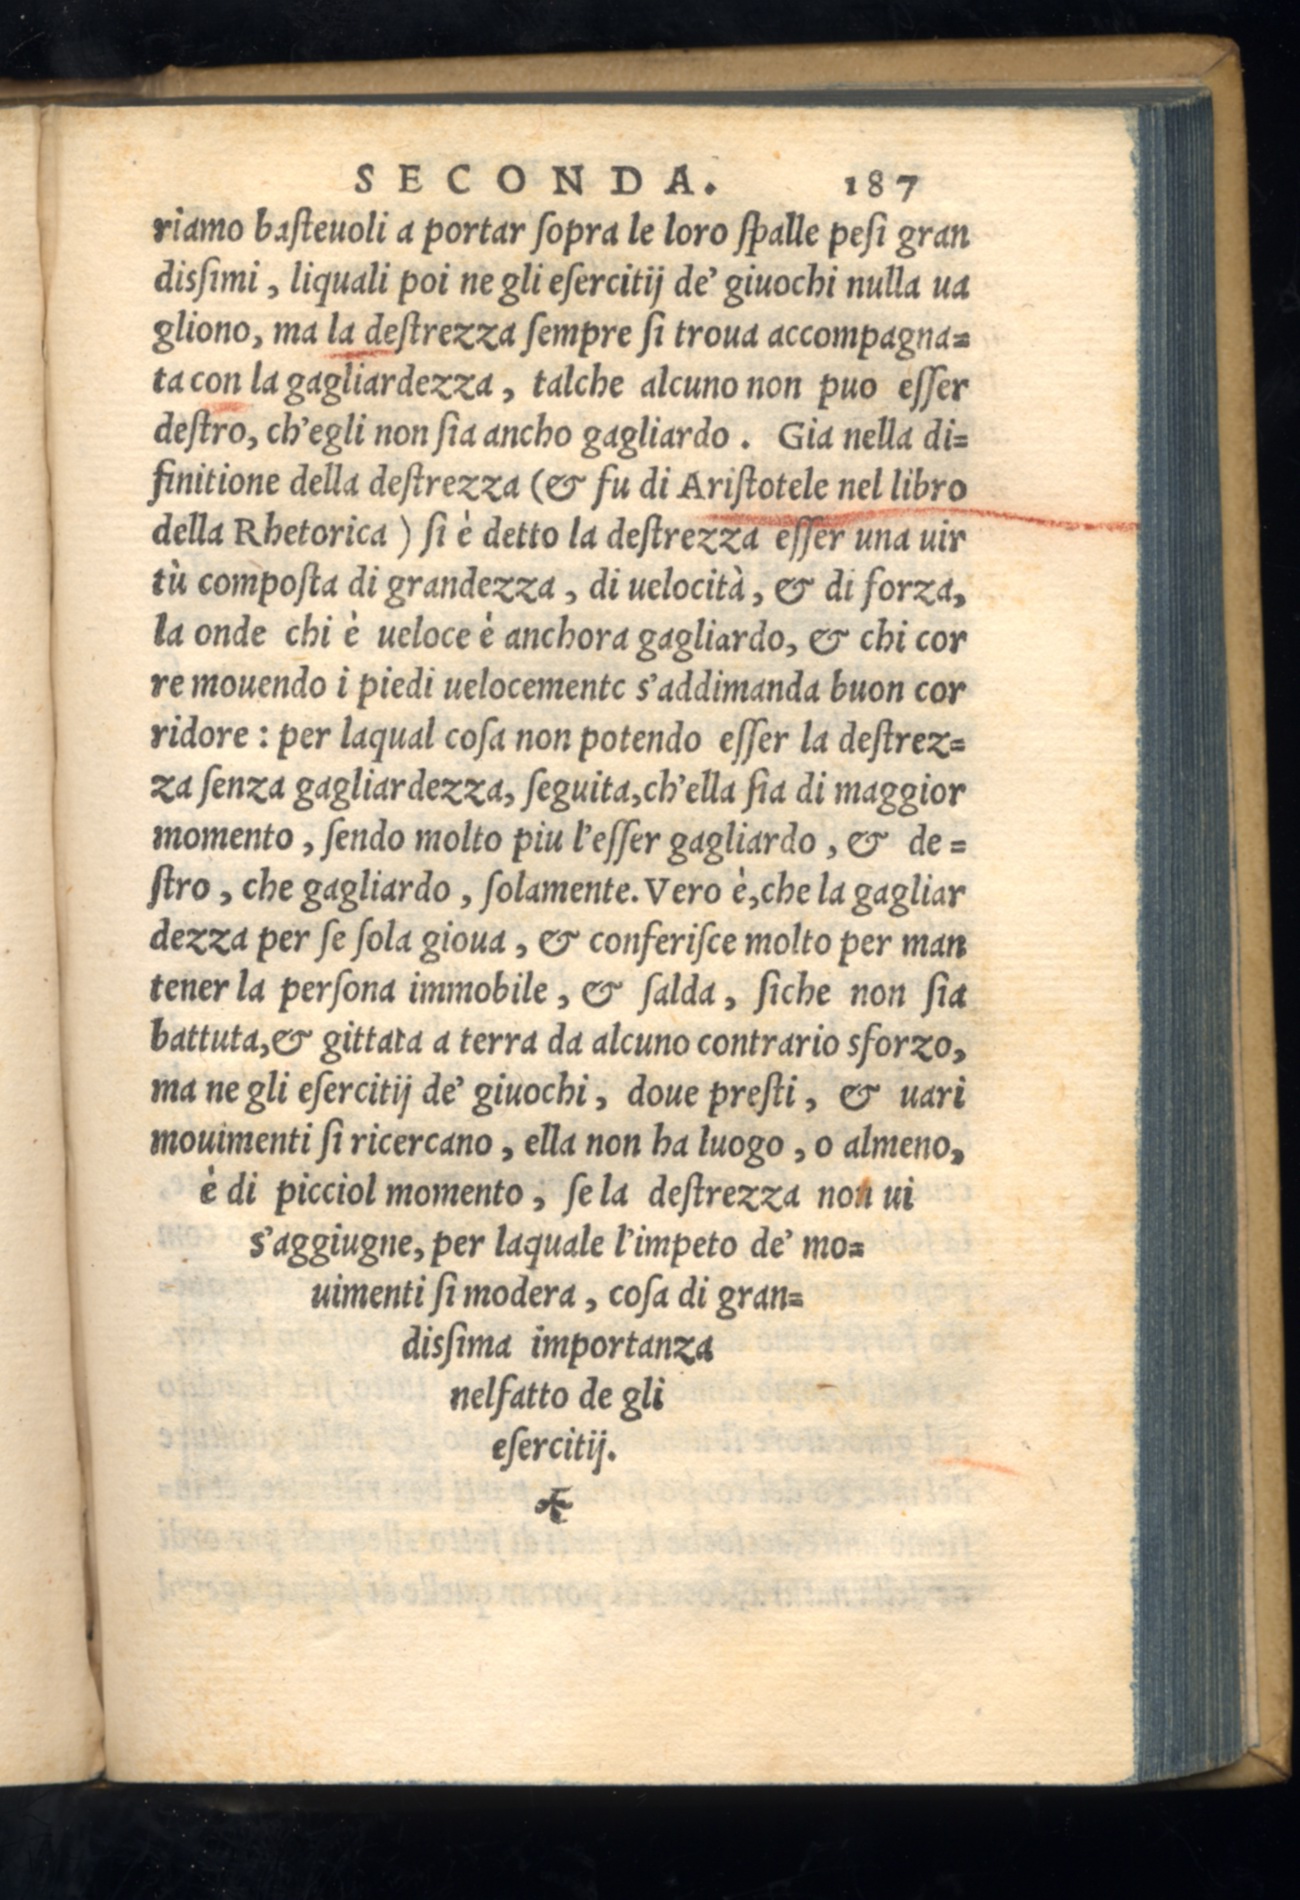 SECONDA. 187
riamo basteuoli a portar ſopra le loro ſpalle peſi gran
disſimi, liquali poi ne gli eſercitij de’ giuochi nulla ua
gliono, ma la deſtrezza ſempre ſi troua accompagna=
ta con la gagliardezza, talche alcuno non puo eſſer
deſtro, ch’egli non ſia ancho gagliardo. Gia nella di=
finitione della deſtrezza (& fu di Ariſtotele nel libro
della Rhetorica) ſi è detto la deſtrezza eſſer una uir
tù compoſta di grandezza, di uelocità, & di forza,
la onde chi è ueloce è anchora gagliardo, & chi cor
re mouendo i piedi uelocemente s’addimanda buon cor
ridore : per laqual coſa non potendo eſſer la deſtrez=
za ſenza gagliardezza, ſeguita, ch’ella ſia di maggior
momento, ſendo molto piu l’eſſer gagliardo, & de=
ſtro, che gagliardo, ſolamente. Vero è, che la gagliar
dezza per ſe ſola gioua, & conferiſce molto per man
tener la perſona immobile, & ſalda, ſiche non ſia
battuta, & gittata a terra da alcuno contrario sforzo,
ma ne gli eſercitij de’ giuochi, doue preſti, & uari
mouimenti ſi ricercano, ella non ha luogo, o almeno,
è di picciol momento, ſe la deſtrezza non ui
s’aggiugne, per laquale l’impeto de’ mo=
uimenti ſi modera, coſa di gran=
disſima importanza
nelfatto de gli
eſercitij.